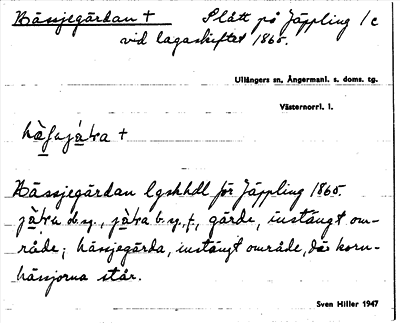 Hässjegärdan +   Slått på Jäppling 1c
vid lagaskiftet 1865.
Ullångers sn, Ångermanl. s. doms. tg.
Västernorrl. l.
Hässjegärdan lgskhdl för Jäppling 1865
gärde, instängt om-
råde; hässjegärda, instängt område, där korn-
hässjorna står.
Sven Hiller 1947